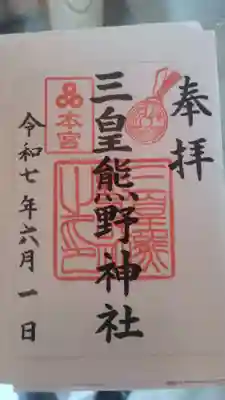 奉拝
三皇熊野神社
本宮
令和七年六月一日